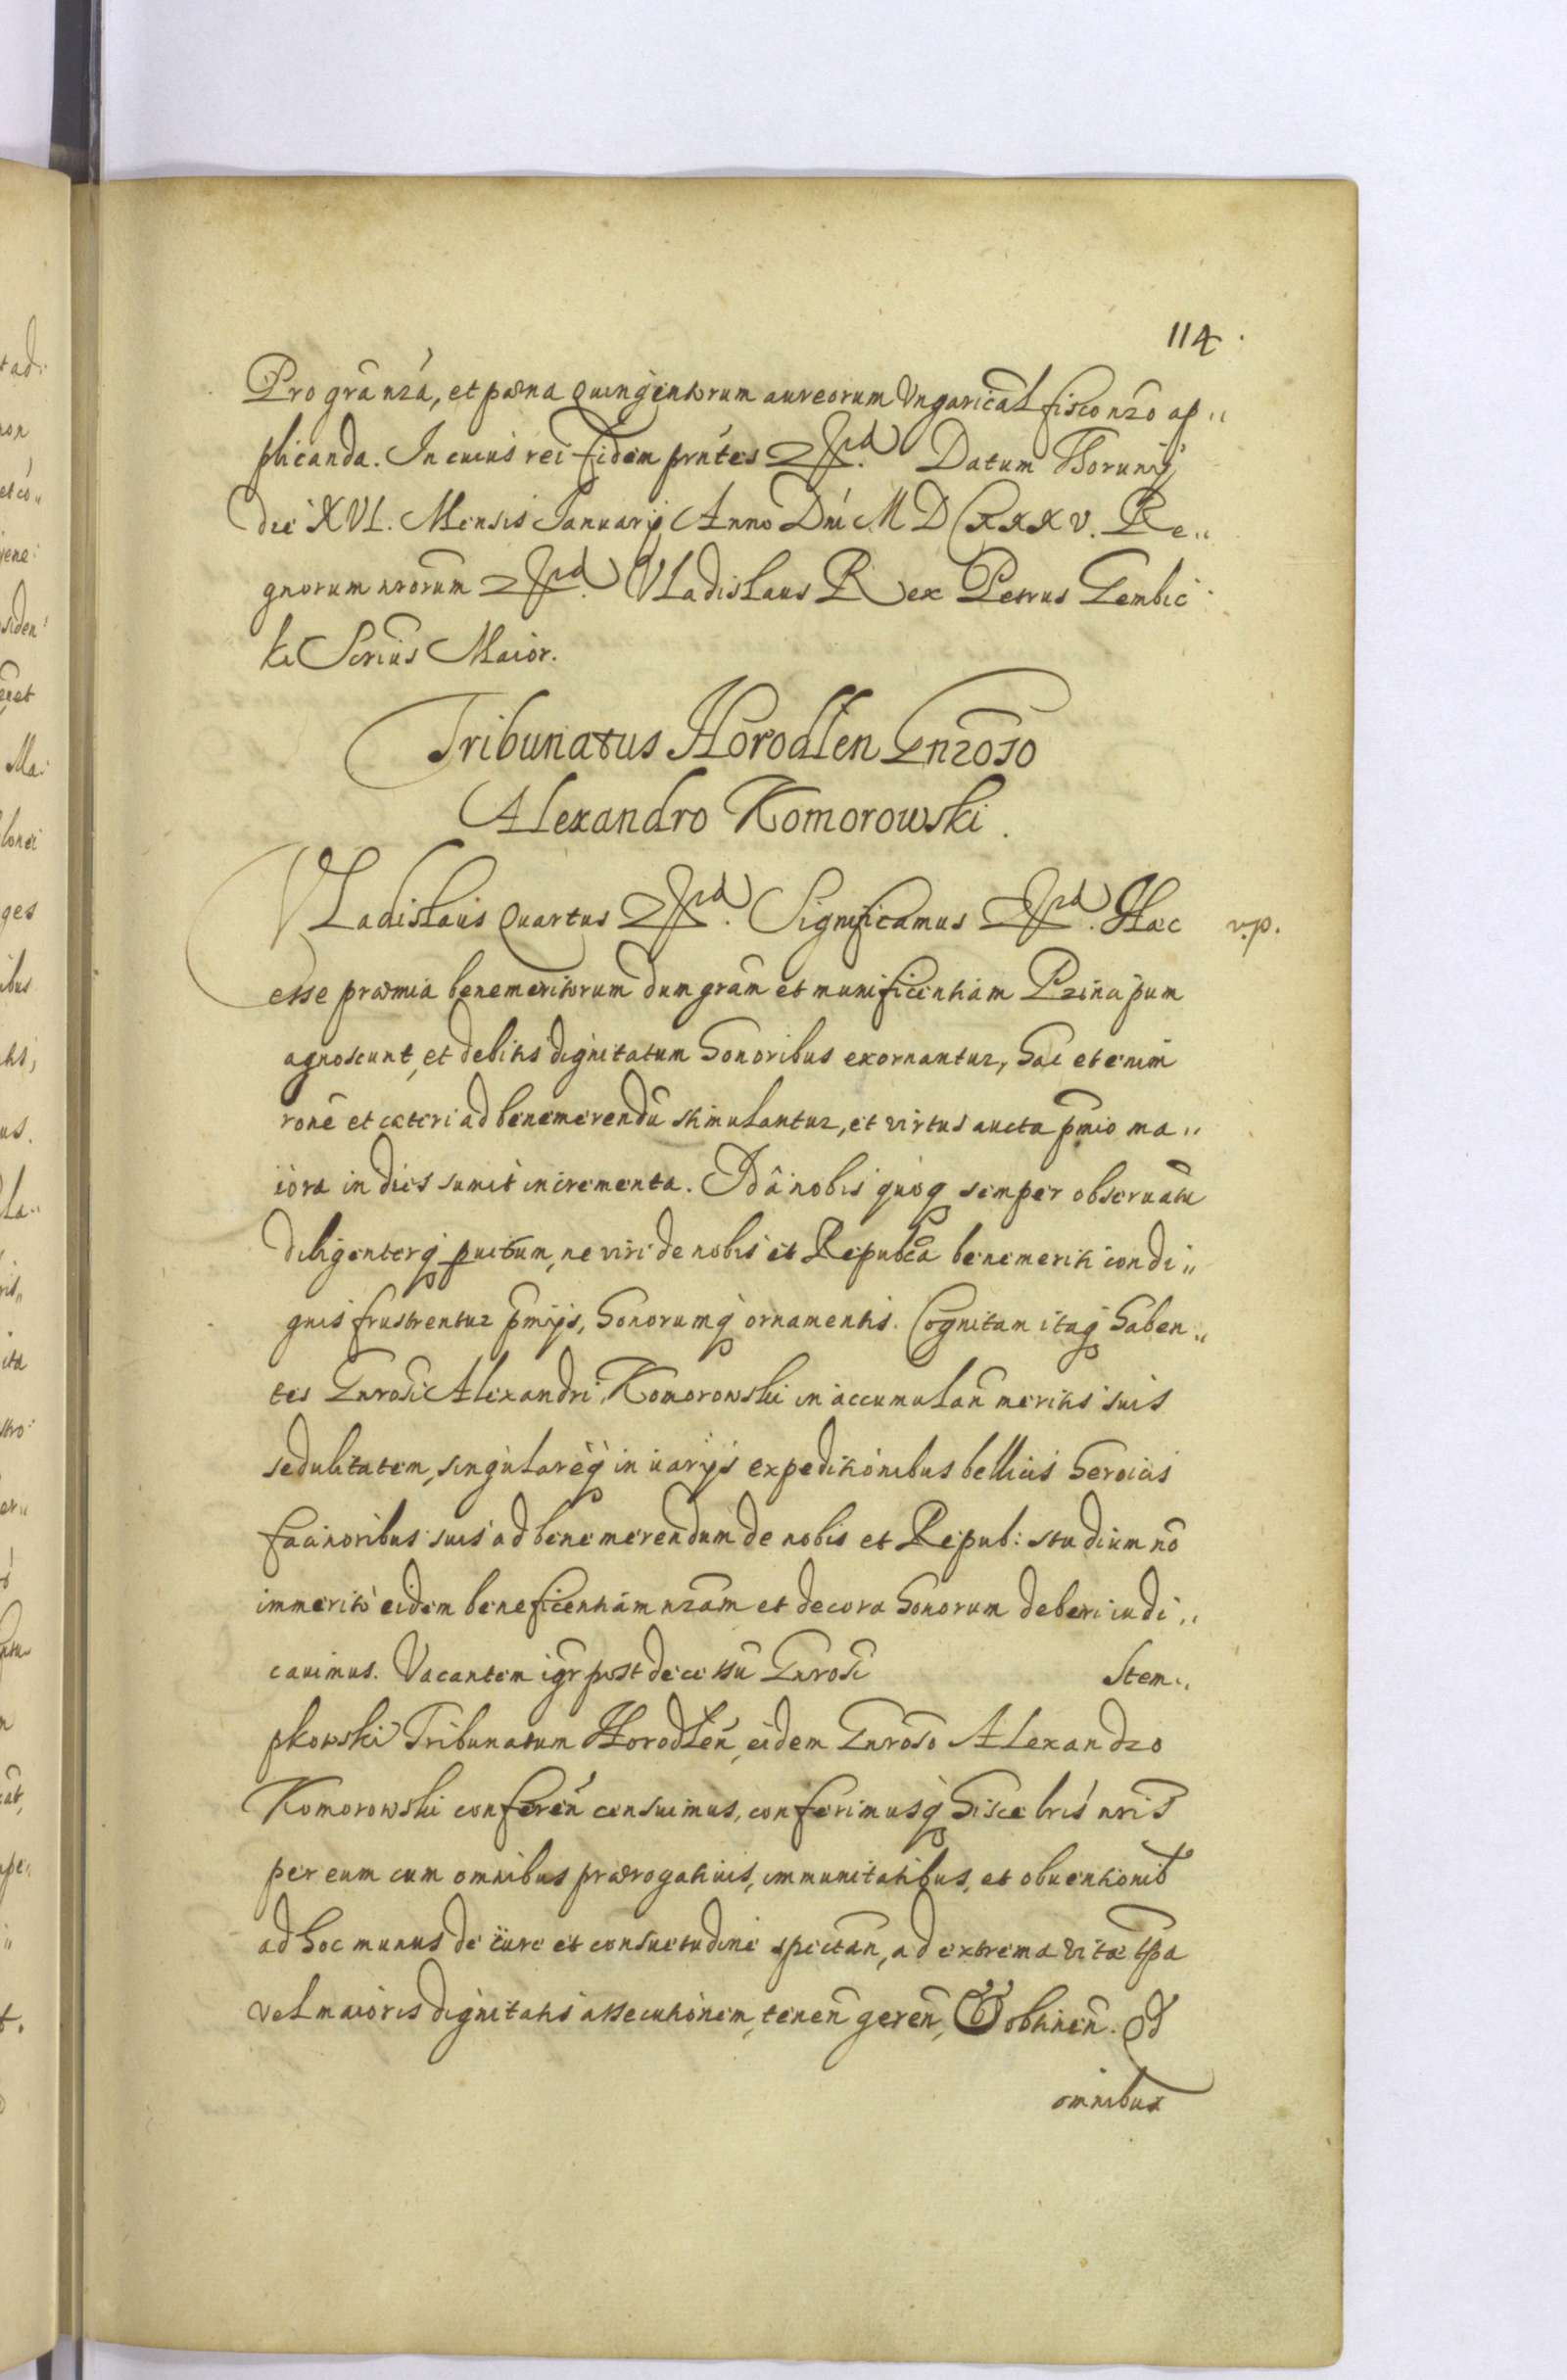 114.
Pro gra nra, et pœna quingentorum aureorum Vngarical fisco nro ap„
plicanda. In cuius rei fidem prntes Datum Thorunij
die XVI. Mensis Januarij Anno Dni M D C XXX V. Re„
gnorum nrorum Vladislaus Rex Petrus Gembic
ki Scrius Maior.
Tribunatus Horodlen Gnroso
Alexandro Komorowski.
Vladislaus Quartus Significamus Hæc v.p.
esse præmia benemeritorum dum gram et munificentiam Principum
agnoscunt, et debitis dignitatum honoribus exornantur, hac etenim
rone et cæteri ad benemerendu stimulantur, et virtus aucta pmio ma„
iora in dies sumit incrementa. Id â nobis quoq semper obseruatu
diligenterq , ne viri de nobis et Republca benemeriti condi„
gnis frustrentur pmijs, honorumq ornamentis. Cognitam itaq haben„
tes Gnrosi Alexandri Komorowski in accumulan meritis suis
sedulitatem, singulareq in varijs expeditionibus bellicis heroicis
facinoribus suis ad benemerendum de nobis et Repub: studium no
immeritò eidem beneficentiam nram et decora honorum deberi iudi„
cauimus. Vacantem igr post decessu Gnrosi Stem„
pkowski Tribunatum Horodlen, eidem Gnroso Alexandro
Komorowski conferen censuimus, conferimusq hisce lris nris
per eum cum omnibus prærogatiuis, immunitatibus, et obuentionib
ad hoc munus de iure et consuetudine spectan, ad extrema vitæ tpa
vel maioris dignitatis assecutionem, tenen geren, & obtinen. Id
omnibus